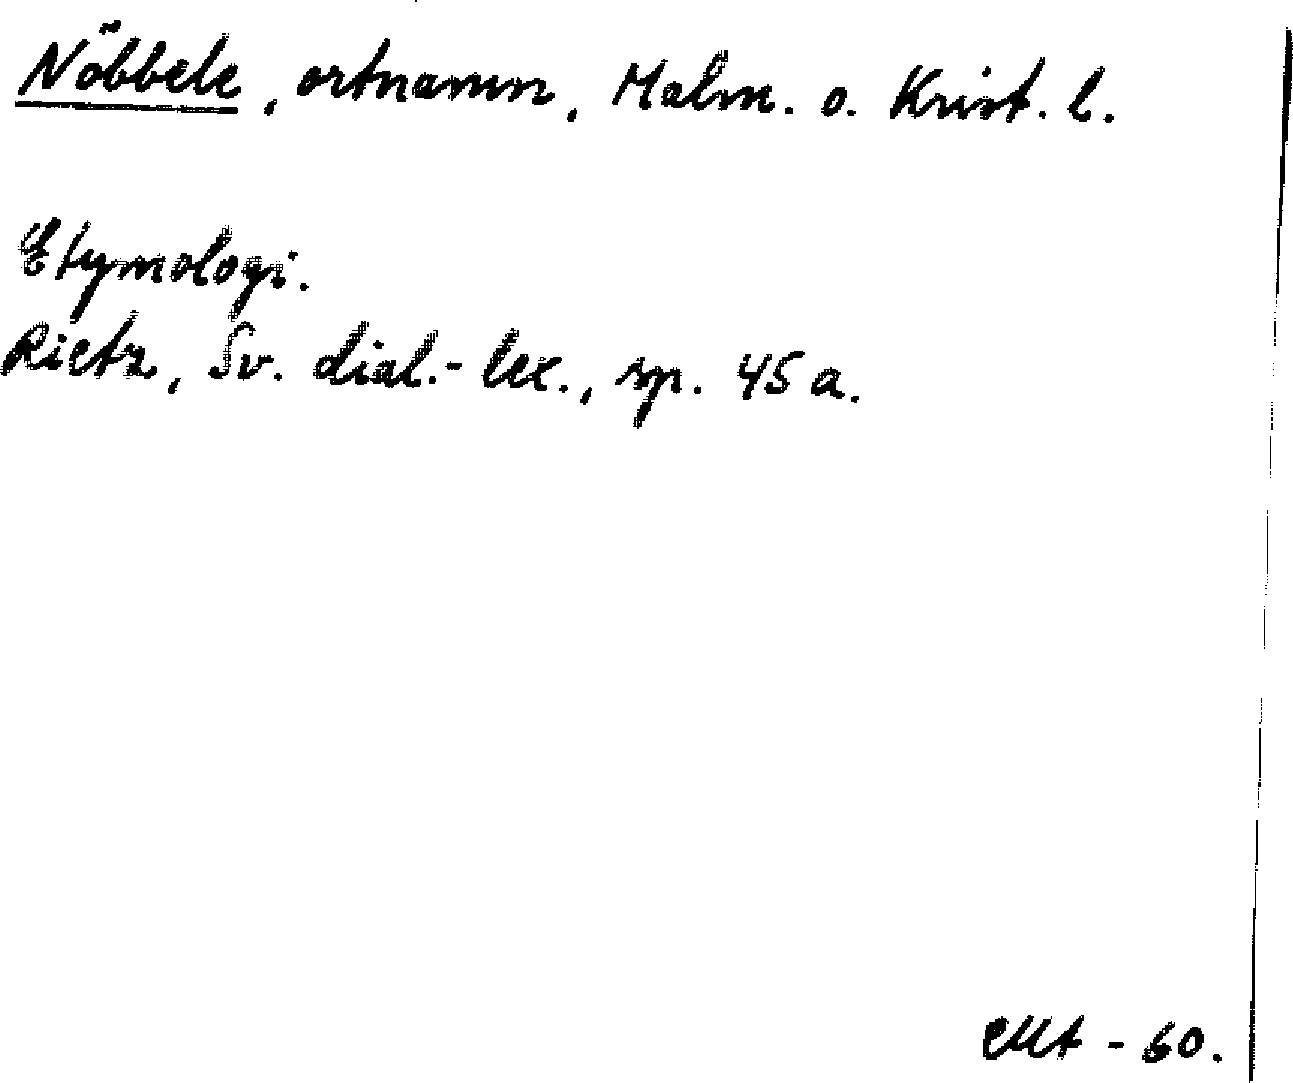 Nöbbele, ortnamn, Malm. o. Krist. l.
Etymologi.
Rietz, Sv. dial.-lex., sp. 45 a.
- 60.